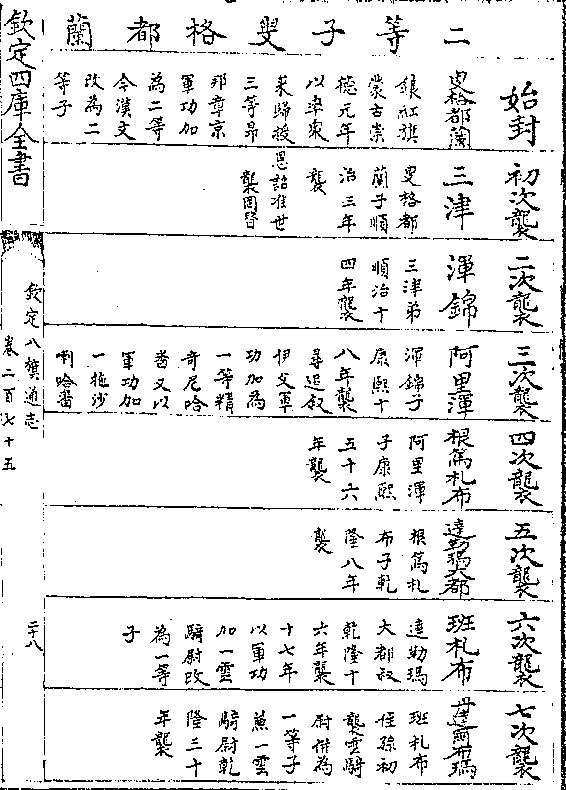 二等子叟格都蘭
始封
叟格都蘭
鑲紅旗
蒙古崇
德元年
以率衆
來歸授
三等昂
邦章京
軍功加
為二等
今漢文
改為二
等子
初次襲
三津
叟格都
蘭子順
治三年
襲
恩詔准世
襲罔替
二次襲
渾錦
三津弟
順治十
四年襲
三次襲
阿里渾
渾錦子
康熙十
八年襲
尋追叙
伊父軍
功加為
一等精
奇尼哈
番又以
軍功加
一拖沙
喇哈番
四次襲
根篤札布
阿里渾
子康熙
五十六
年襲
五次襲
達勒瑪大都
根篤札
布子乾
隆八年
襲
六次襲
班札布
達勒瑪
大都叔
乾隆十
六年襲
十七年
以軍功
加一雲
騎尉改
為一等
子
七次襲
班札布
侄孫初
襲雲騎
尉併為
一等子
兼一雲
騎尉乾
隆三十
年襲
欽定四庫全書
欽定八旗通志
卷二百七十五
二十八